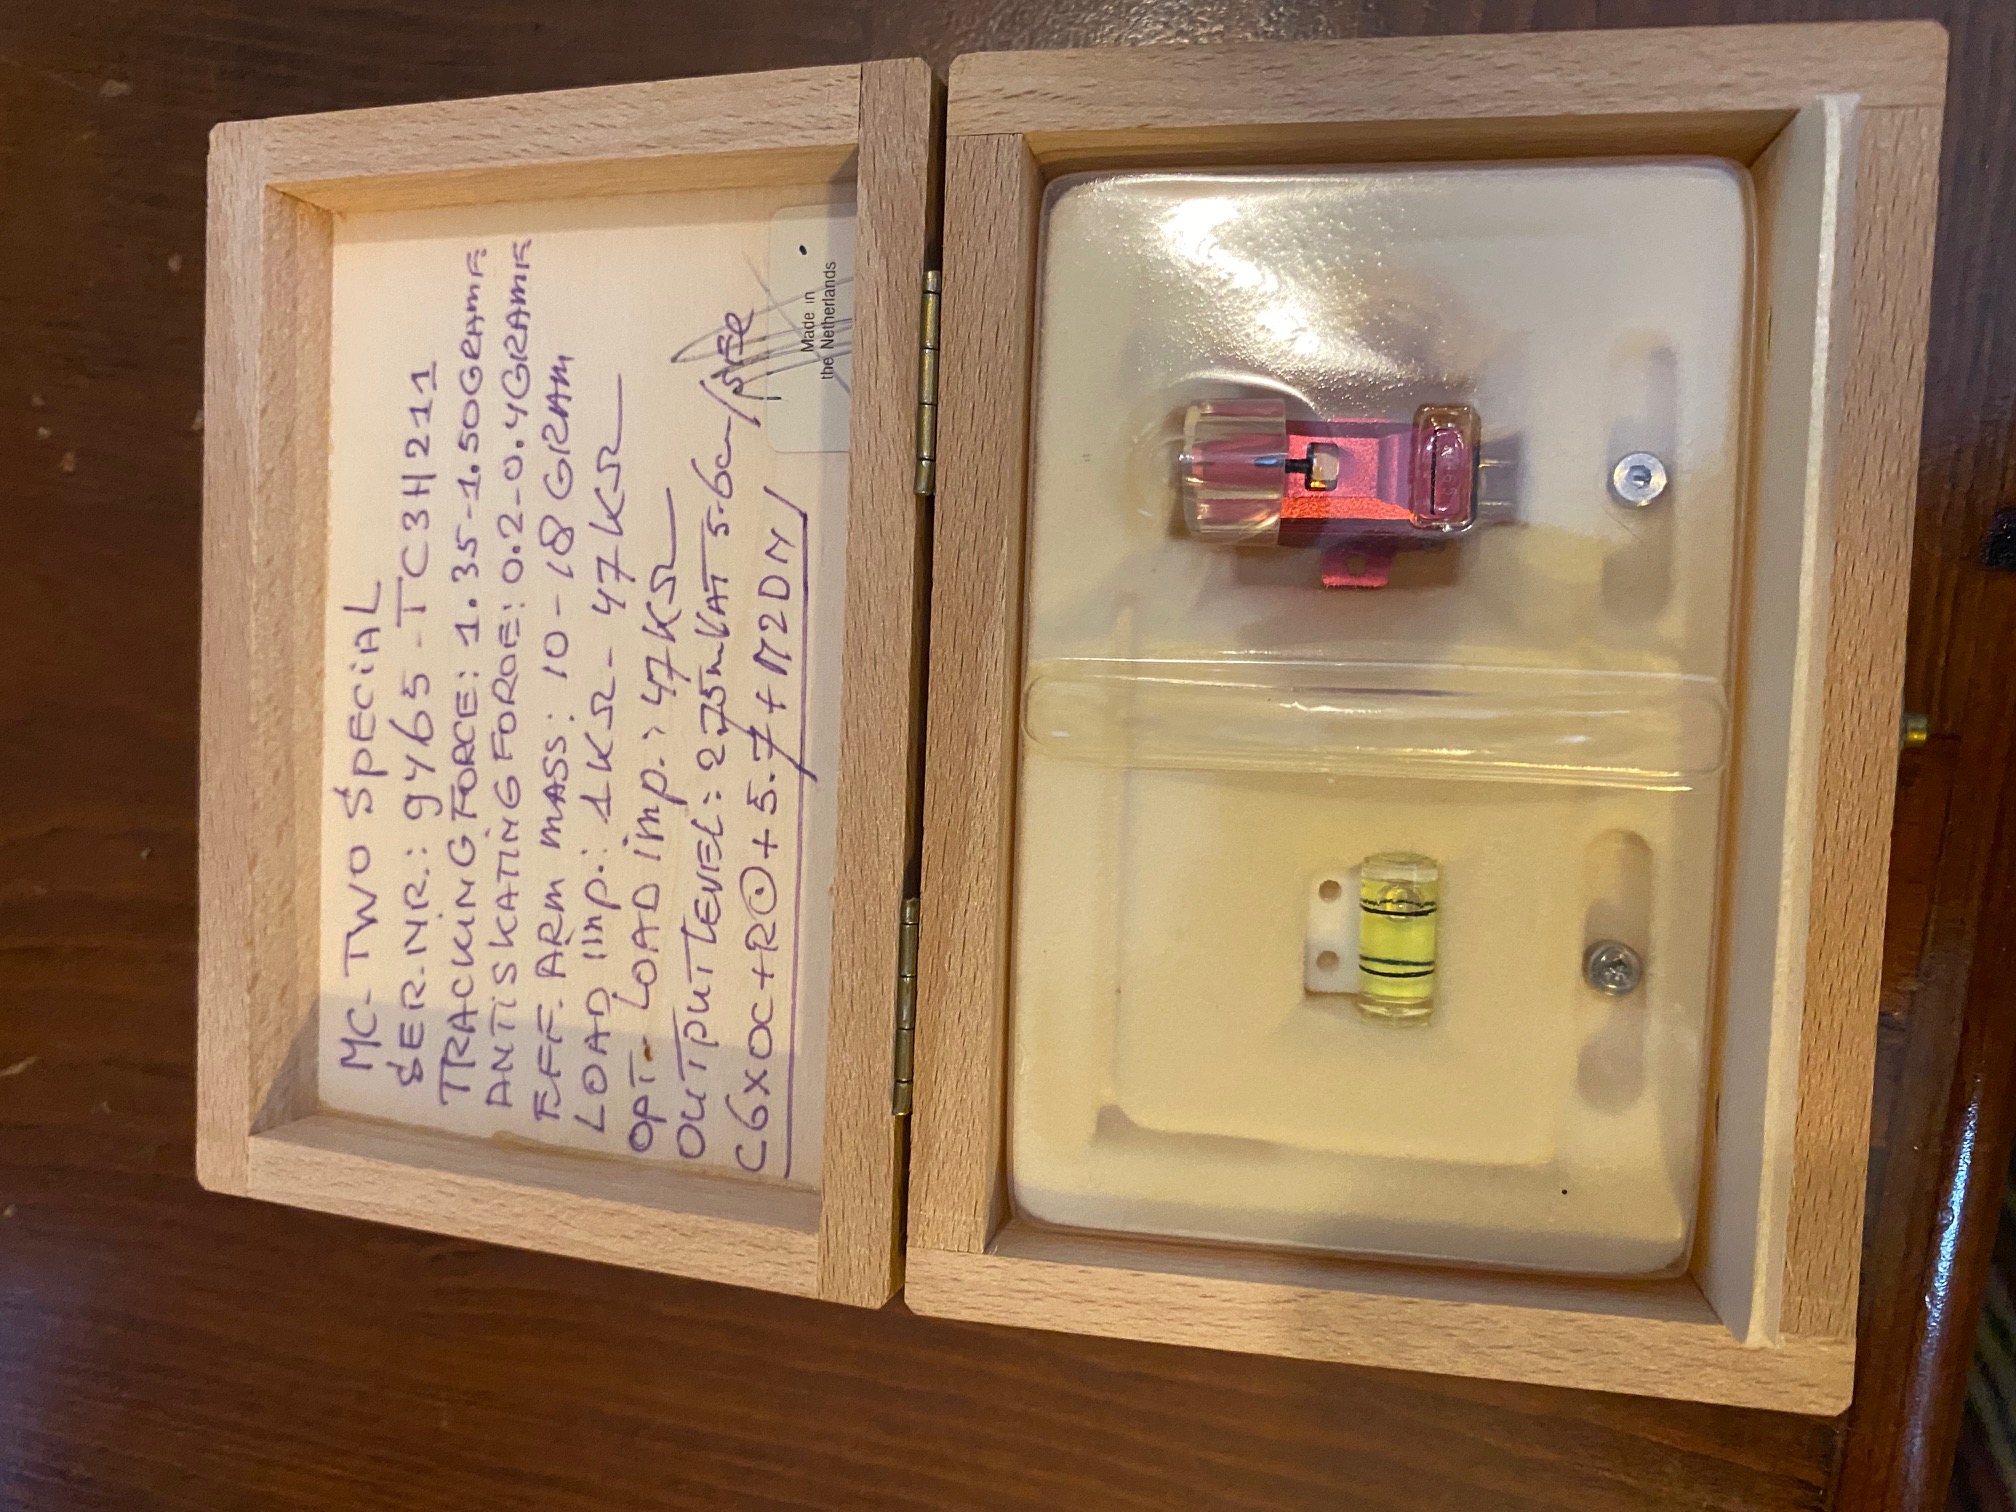 MC-TWO SPECIAL
SER.NR.: 9465-TC3H211
TRACKING FORCE: 1.35-1.50GRAMF
ANTISKATING FORCE: 0.2-0.4GRAMF
EFF. ARM MASS: 10-18 GRAM
LOAD IMP.: 1KΩ-47KΩ
OPT. LOAD IMP.> 47KΩ
OUTPUT LEVEL: 2.75mV AT 5.6cm/sec
C6XOC+R⊙+5.7+M2DM/
Made in
the Netherlands